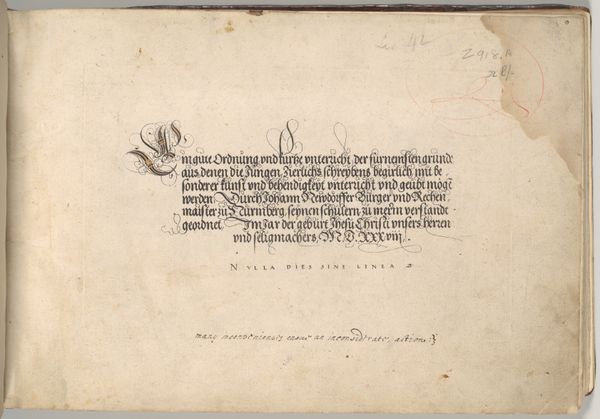 Z 918. A
Ein gute Ordnung vnd kurtze vnterricht der fürnemsten gründe
aus denen die Jungen Zierlichs schreybens begirlich mit be-
sonderer kunst vnd behendigkeyt vnterricht vnd geubt mögē
werden. Durch Johann Newdörffer Burger vnd Rechen-
maister zu Nürmberg, seynen schulern zu merm verstandt
geordnet. Im Jar der geburt Jhesu Christi vnsers herren
vnd seligmachers, M.D.XXXviij.
NVLLA DIES SINE LINEA
many inconveniensis ensue an inconsidtrate, action: